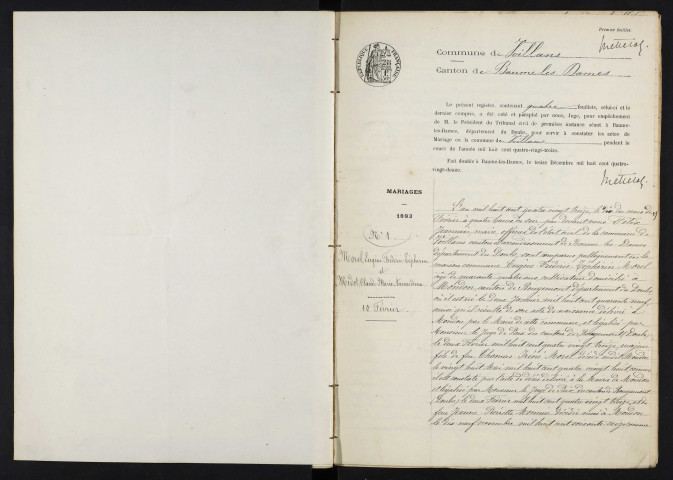 Premier feuillet
Commune de Voillans
Canton de Baume les Dames
Le présent registre, contenant quatre feuillets, celui-ci et le
dernier compris, a été coté et paraphé par nous, Juge, pour empêchement
de M. le Président du Tribunal civil de première instance séant à Baume-
les-Dames, département du Doubs, pour servir à constater les actes de
Mariage de la commune de Voillans pendant le
cours de l'année mil huit cent quatre-vingt-treize.
Fait double à Baume-les-Dames, le treize Décembre mil huit cent quatre-
vingt-douze.
RÉPUBLIQUE FRANÇAISE
MARIAGES
1893
N° 1
Morel Eugène Frédéric Zéphirin
et
10 Février
L'an mil huit cent quatre vingt treize, le dix du mois de
Février à quatre heures du soir par devant nous
Jeannin maire officier de l'état civil de la commune de
Voillans canton et arrondissement de Baume les Dames
département du Doubs, sont comparus publiquement en la
maison commune Eugène Frédéric Zéphirin Morel
âgé de quarante quatre ans cultivateur domicilié à
Mondon, canton de Rougemont département du Doubs,
où il est né le deux Janvier mil huit cent quarante neuf,
ainsi qu'il résulte de son acte de naissance délivré à
Mondon par le Maire de cette commune, et légalisé par
Monsieur le Juge de Paix du canton de Rougemont, Doubs,
le deux Février mil huit cent quatre vingt treize, majeur
fils de feu Morel décédé à Mondon
le vingt huit Mai mil huit cent quatre vingt huit comme
il est constaté par l'acte de décès délivré à la Mairie de Mondon
et légalisé par Monsieur le Juge de Paix du canton de Rougemont
Doubs, le deux Février mil huit cent quatre vingt treize, et de
feu Jeanne Pierrette décédée aussi à Mondon
le dix neuf novembre mil huit cent soixante comme